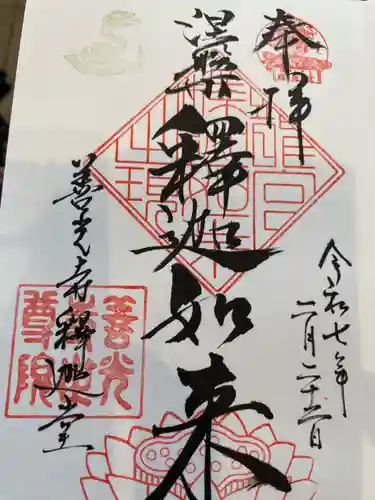 奉拝
涅槃釋迦如来
令和七年
二月二十二日
善光寺釋迦堂
善光
寺世
尊院